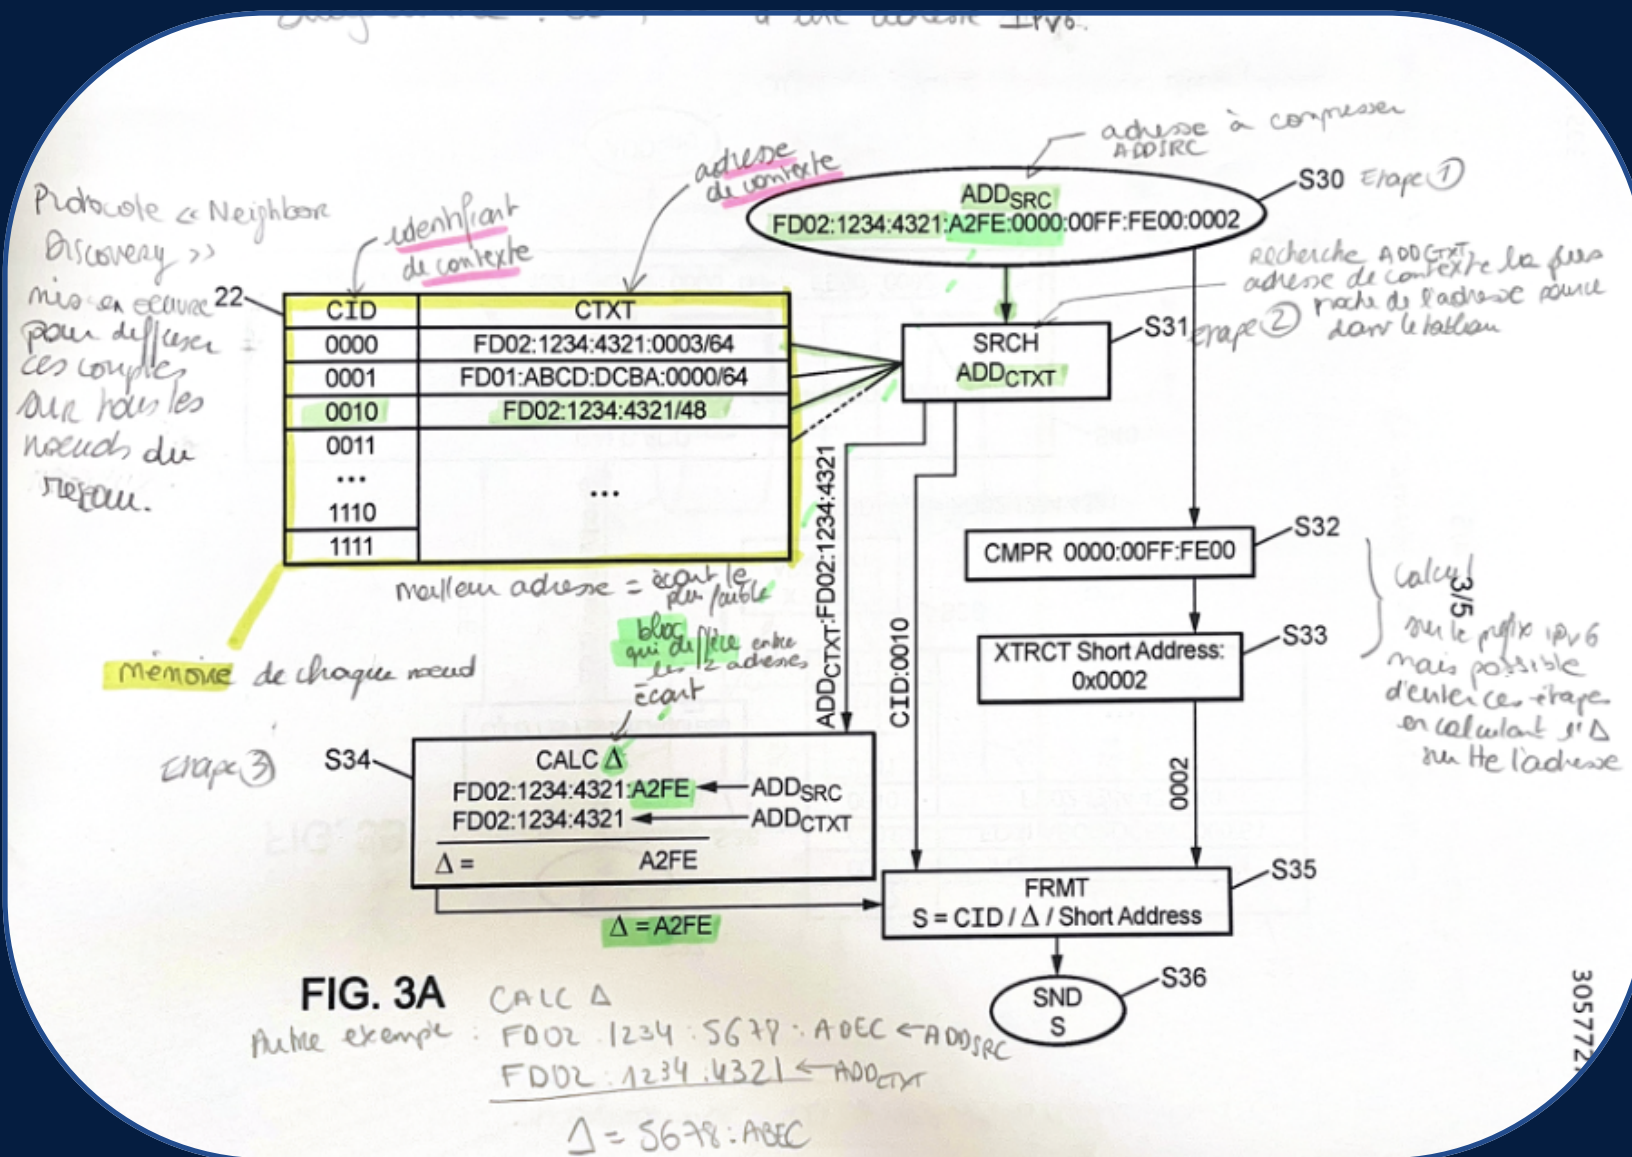 à une adresse IPv6.
adresse à compresser
ADDSRC
adresse
de contexte
S30 Etape ①
ADDSRC
FD02:1234:4321:A2FE:0000:00FF:FE00:0002
Protocole « Neighbor
Discovery »
mis en œuvre
pour diffuser
ces couples
sur tous les
noeuds du
réseau.
identifiant
de contexte
22
CID CTXT
0000 FD02:1234:4321:0003/64
0001 FD01:ABCD:DCBA:0000/64
0010 FD02:1234:4321/48
0011
... ...
1110
1111
Recherche ADDCTXT,
adresse de contexte la plus
proche de l'adresse source
dans le tableau
Etape ②
SRCH
ADDCTXT
S31
meilleur adresse = écart le
plus faible
bloc
qui diffère entre
les 2 adresses
écart
mémoire de chaque noeud
ADDCTXT:FD02:1234:4321
CID:0010
CMPR 0000:00FF:FE00
S32
XTRCT Short Address:
0x0002
S33
0002
Calcul
3/5
sur le préfix ipv6
mais possible
d'éviter ces étapes
en calculant l'Δ
sur tte l'adresse
Etape ③
S34
CALC Δ
FD02:1234:4321:A2FE ADDSRC
FD02:1234:4321 ADDCTXT
Δ = A2FE
Δ = A2FE
FRMT
S = CID / Δ / Short Address
S35
SND
S
S36
FIG. 3A
CALC Δ
Autre exemple : FD02:1234:5678:ABEC ← ADDSRC
FD02:1234:4321 ← ADDCTXT
Δ = 5678:ABEC
305772